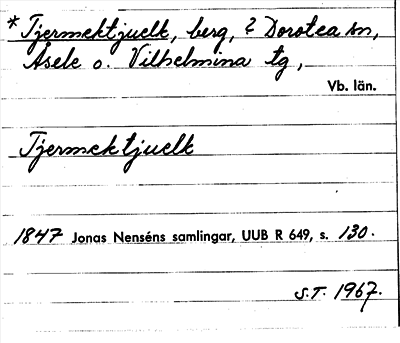 * Tjermektjuelk, berg, ? Dorotea sn,
Åsele o. Vilhelmina tg,
Vb. län.
Tjermektjuelk
1847 Jonas Nenséns samlingar, UUB R 649, s. 130.
S.T. 1967.